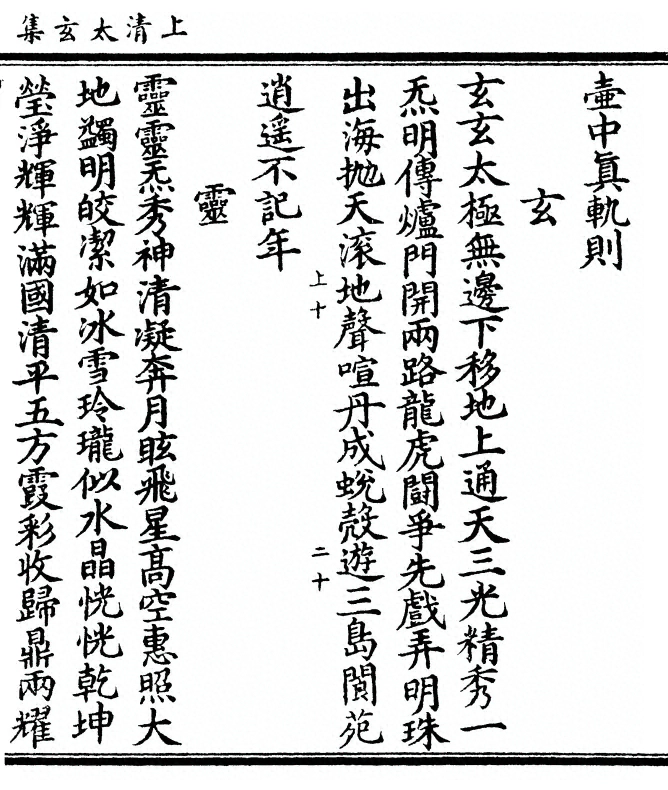 上清太玄集
壺中眞軌則
玄
玄玄太極無邊下移地上通天三光精秀一
炁明傳爐門開兩路龍虎鬪爭先戲弄明珠
出海抛天滚地聲喧丹成蛻殼遊三島閬苑
上十
二十
逍遥不記年
靈
靈靈炁秀神清凝奔月眩飛星高空惠照大
地蠲明皎潔如冰雪玲瓏似水晶恍恍乾坤
瑩淨輝輝滿國清平五方霞彩收歸鼎兩耀